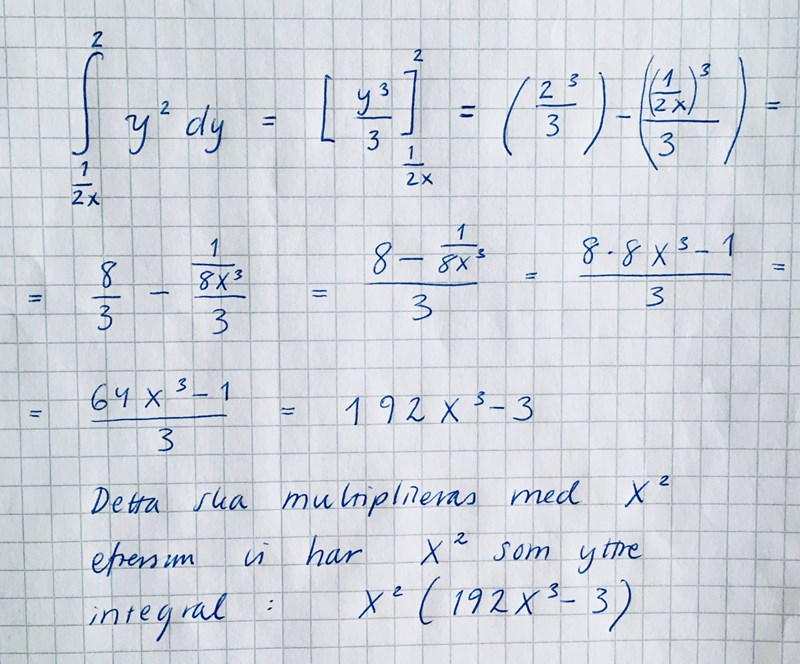 ∫_{1/2x}^{2} y² dy = [y³/3]_{1/2x}^{2} = (2³/3) − ((1/2x)³/3) =
= 8/3 − (1/8x³)/3 = (8 − 1/8x³)/3 = (8·8x³ − 1)/3 =
= (64x³ − 1)/3 = 192x³ − 3
Detta ska multipliceras med x²
eftersom vi har x² som yttre
integral : x² (192x³ − 3)